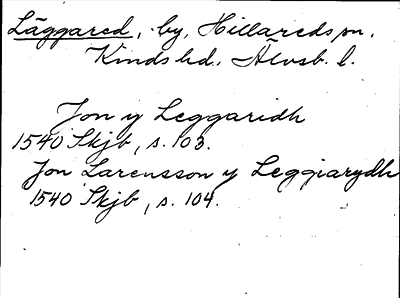 Läggared, by, Hillareds sn.
Kinds hd. Älvsb. l.
Jon y Leggaridh
1540 Skjb, s. 103.
Jon Larensson y Leggiarydh
1540 Skjb, s. 104.